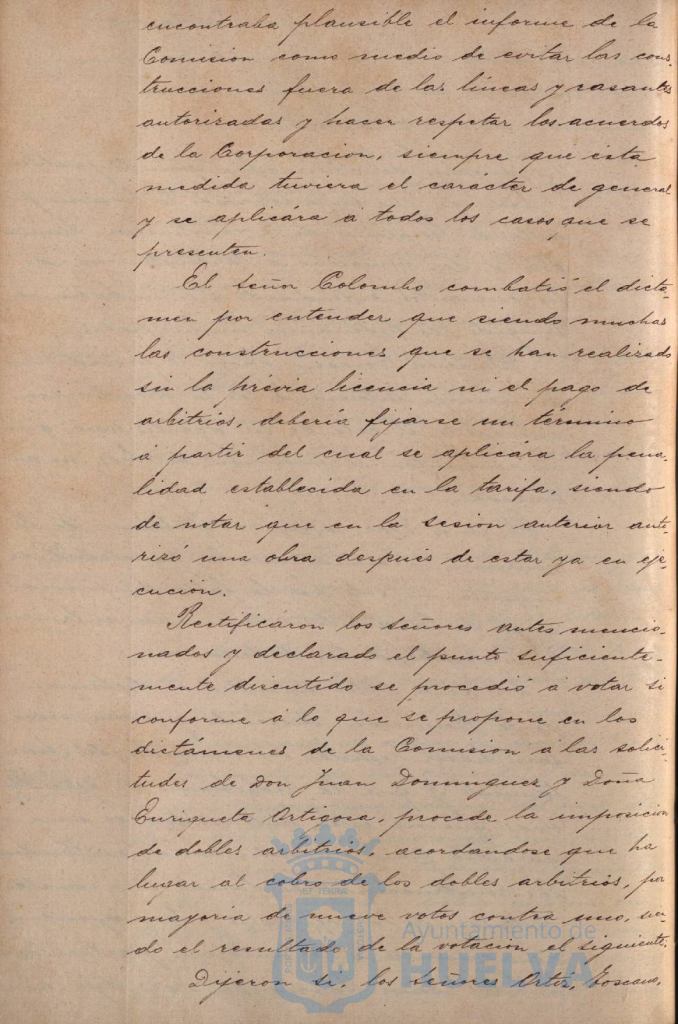 encontraba plausible el informe de la
Comision como medio de evitar las cons-
trucciones fuera de las líneas y rasantes
autorizadas y hacer respetar los acuerdos
de la Corporacion, siempre que esta
medida tuviera el carácter de general
y se aplicára á todos los casos que se
presenten.
El Señor Colombo combatió el dictá-
men por entender que siendo muchas
las construcciones que se han realizado
sin la prévia licencia ni el pago de
arbitrios, debería fijarse un término
á partir del cual se aplicára la pena-
lidad establecida en la tarifa, siendo
de notar que en la sesion anterior auto-
rizó una obra después de estar ya en eje-
cución.
Rectificaron los señores antes mencio-
nados y declarado el punto suficiente-
mente discutido se procedió á votar si
conforme á lo que se propone en los
dictámenes de la Comision á las solici-
tudes de Don Juan Dominguez y Doña
Enriqueta Ortigosa, procede la imposicion
de dobles arbitrios, acordándose que ha
lugar al cobro de los dobles arbitrios, por
mayoría de nueve votos contra uno, sien-
do el resultado de la votacion el siguiente.
Dijeron si, los Señores Ortiz, Toscano,
Ayuntamiento de
HUELVA